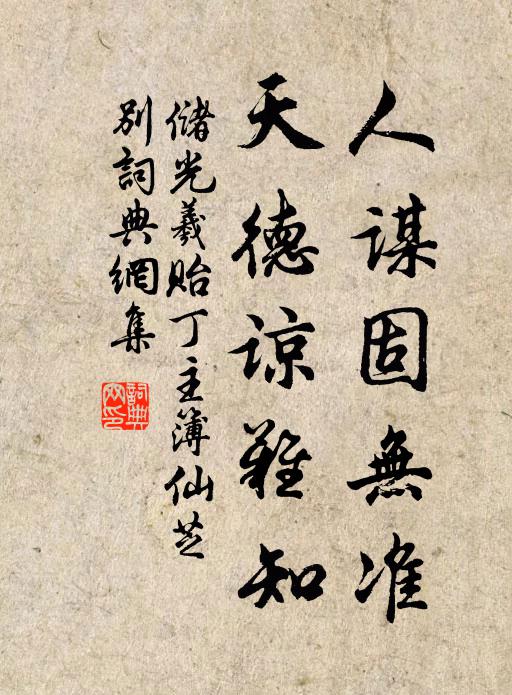 人谋固無准
天德谅難知
儲光羲貽丁主簿仙芝
別詞典網集
詞典
网印